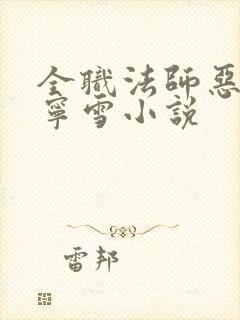 全職法師惡
寧雪小說
雷邦